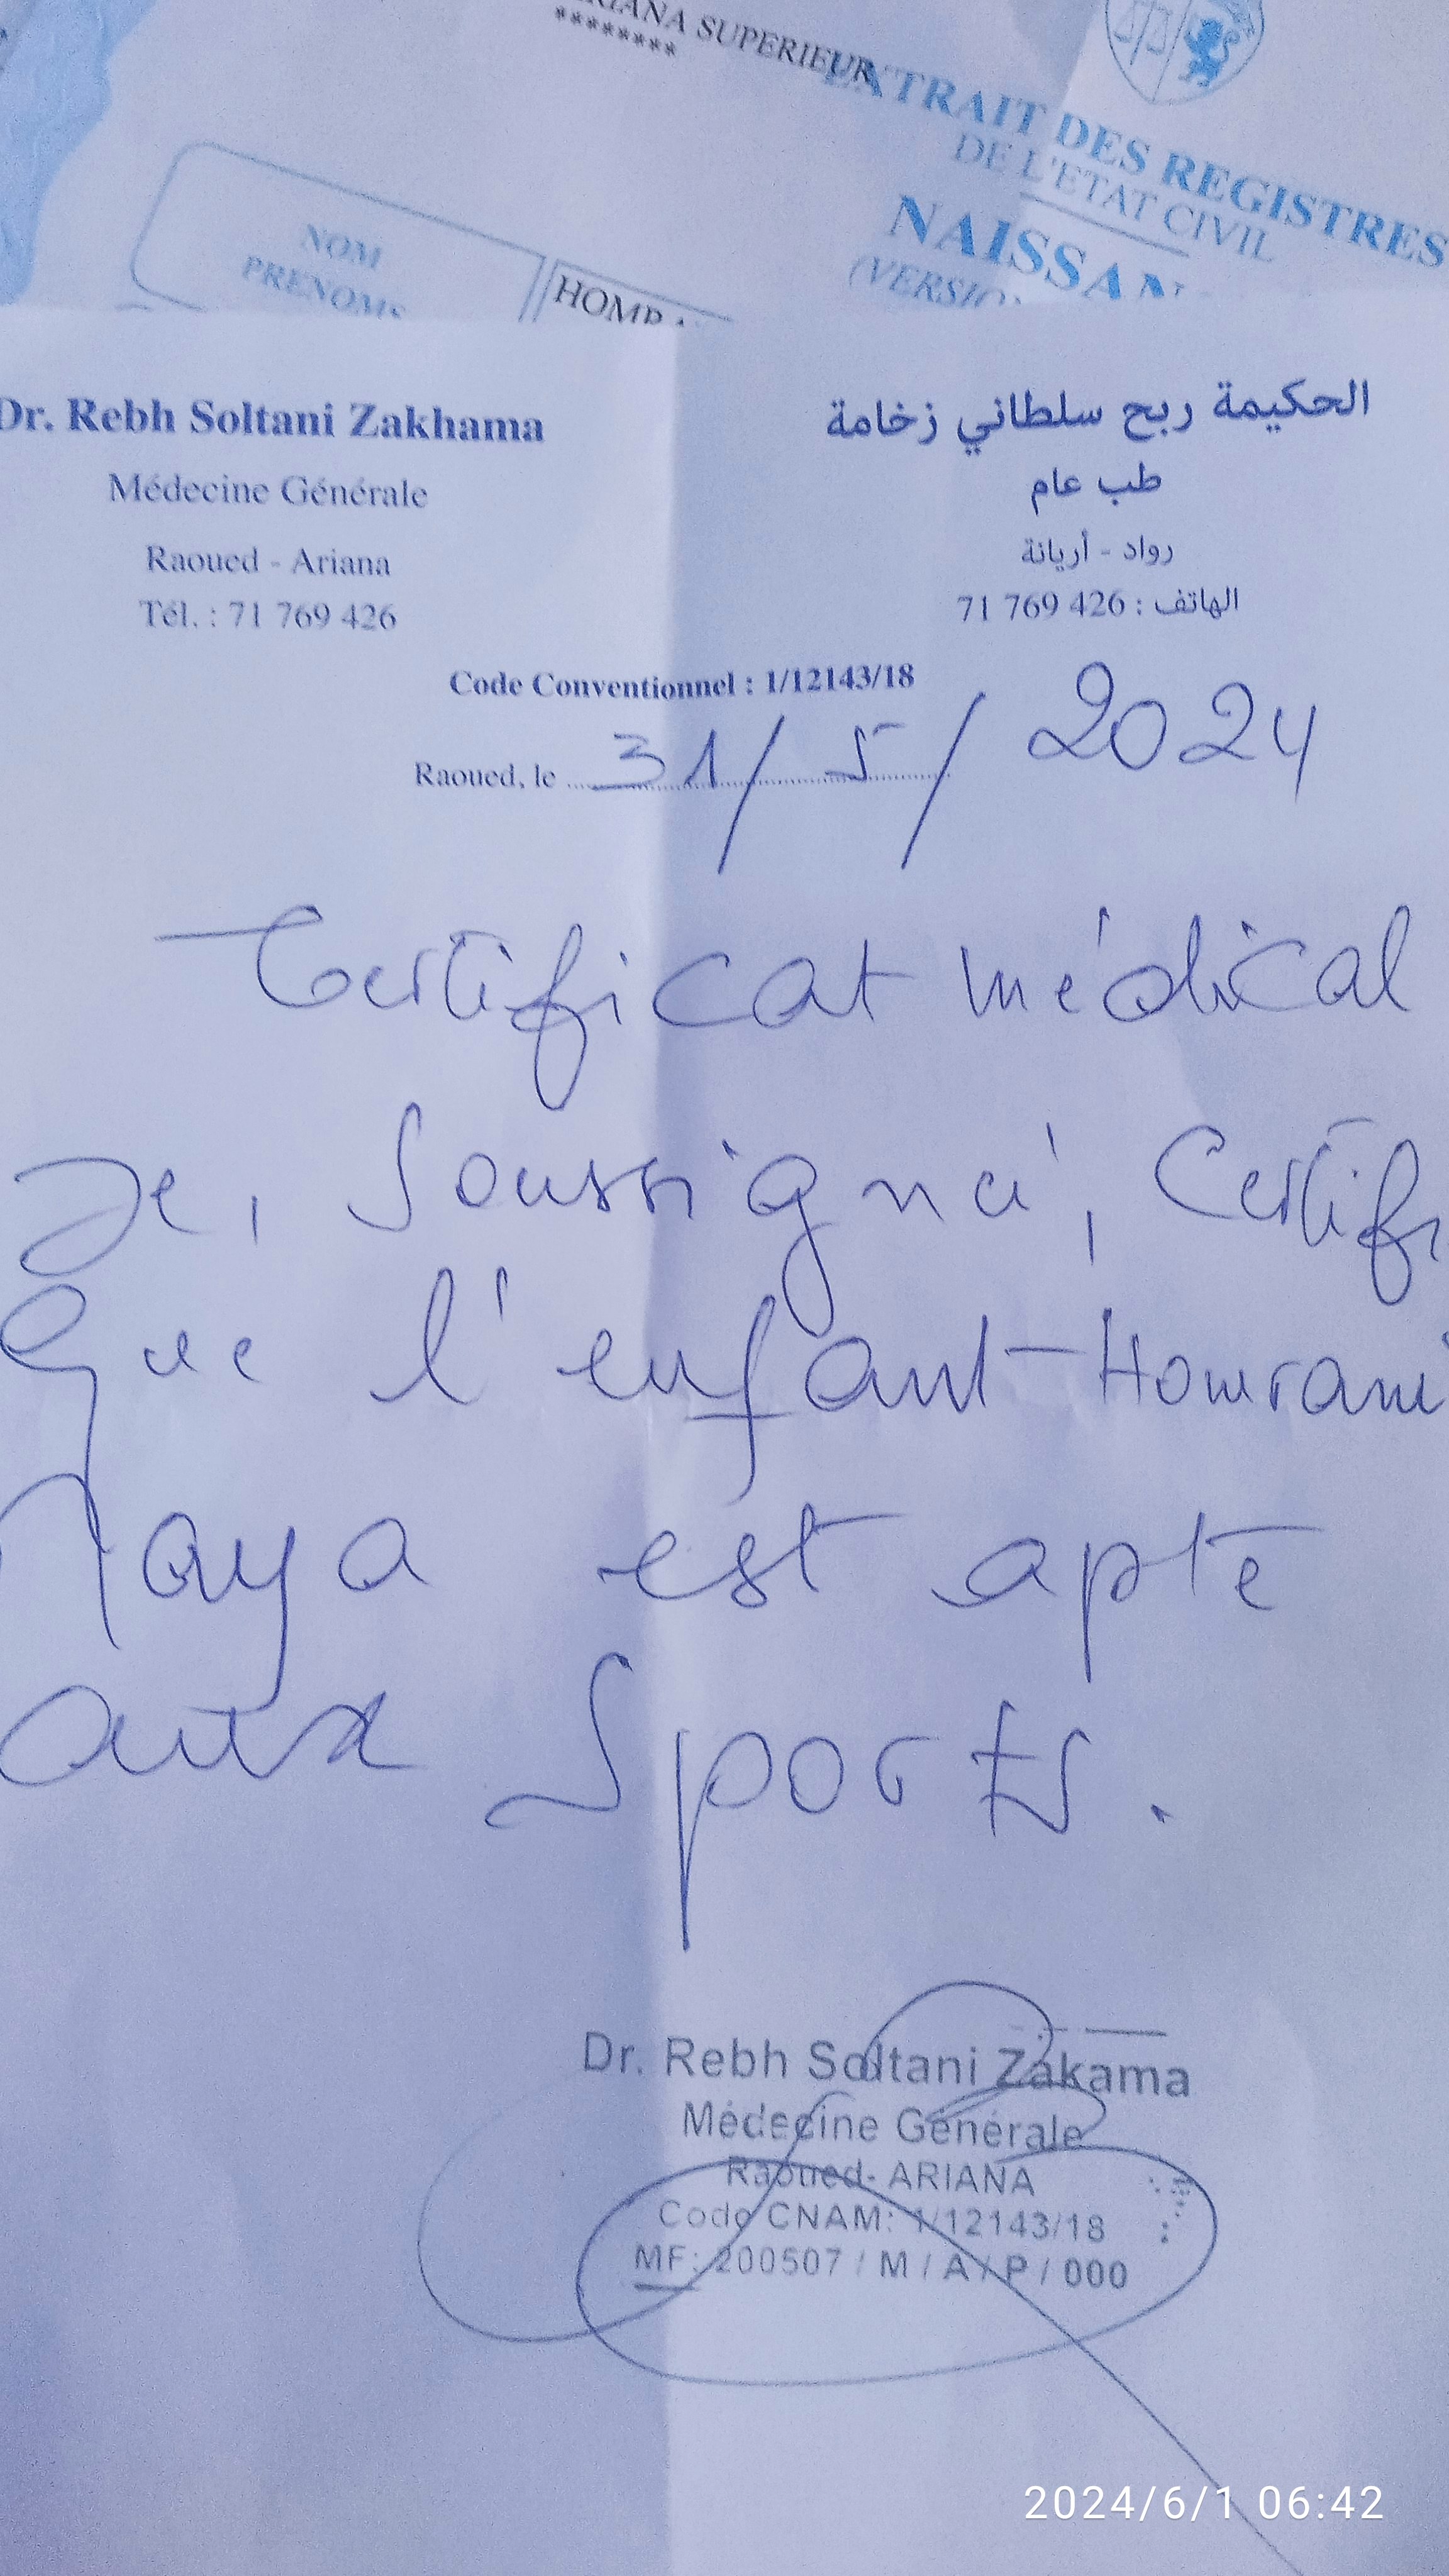 ARIANA SUPERIEUR
********
EXTRAIT DES REGISTRES
DE L'ETAT CIVIL
NAISSAN
(VERSION
NOM
PRENOMS
HOMRA
Dr. Rebh Soltani Zakhama
Médecine Générale
Raoued - Ariana
Tél. : 71 769 426
الحكيمة ربح سلطاني زخامة
طب عام
رواد - أريانة
الهاتف : 426 769 71
Code Conventionnel : 1/12143/18
Raoued, le 31/5/2024
Certificat médical
Je, soussigné, certifi
que l'enfant Homrani
Maya est apte
aux sports.
Dr. Rebh Soltani Zakama
Médecine Générale
Raoued- ARIANA
Code CNAM: 1/12143/18
MF: 200507 / M / A / P / 000
2024/6/1 06:42